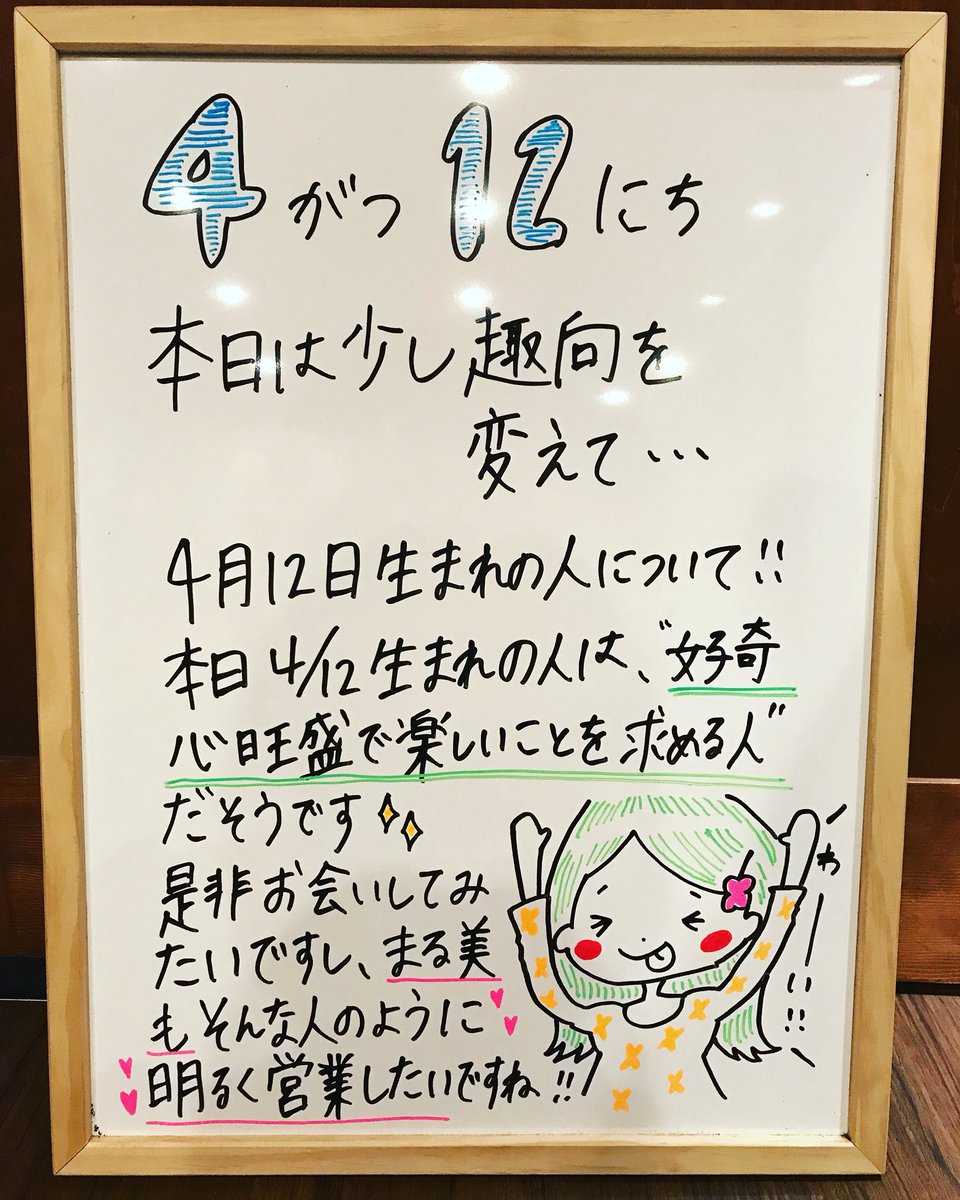 4がつ12にち
本日は少し趣向を
変えて…
4月12日生まれの人について!!
本日4/12生まれの人は、"好奇
心旺盛で楽しいことを求める人"
だそうです
是非お会いしてみ
たいですし、まる美
もそんな人のように
明るく営業したいですね!!
わーーい!!